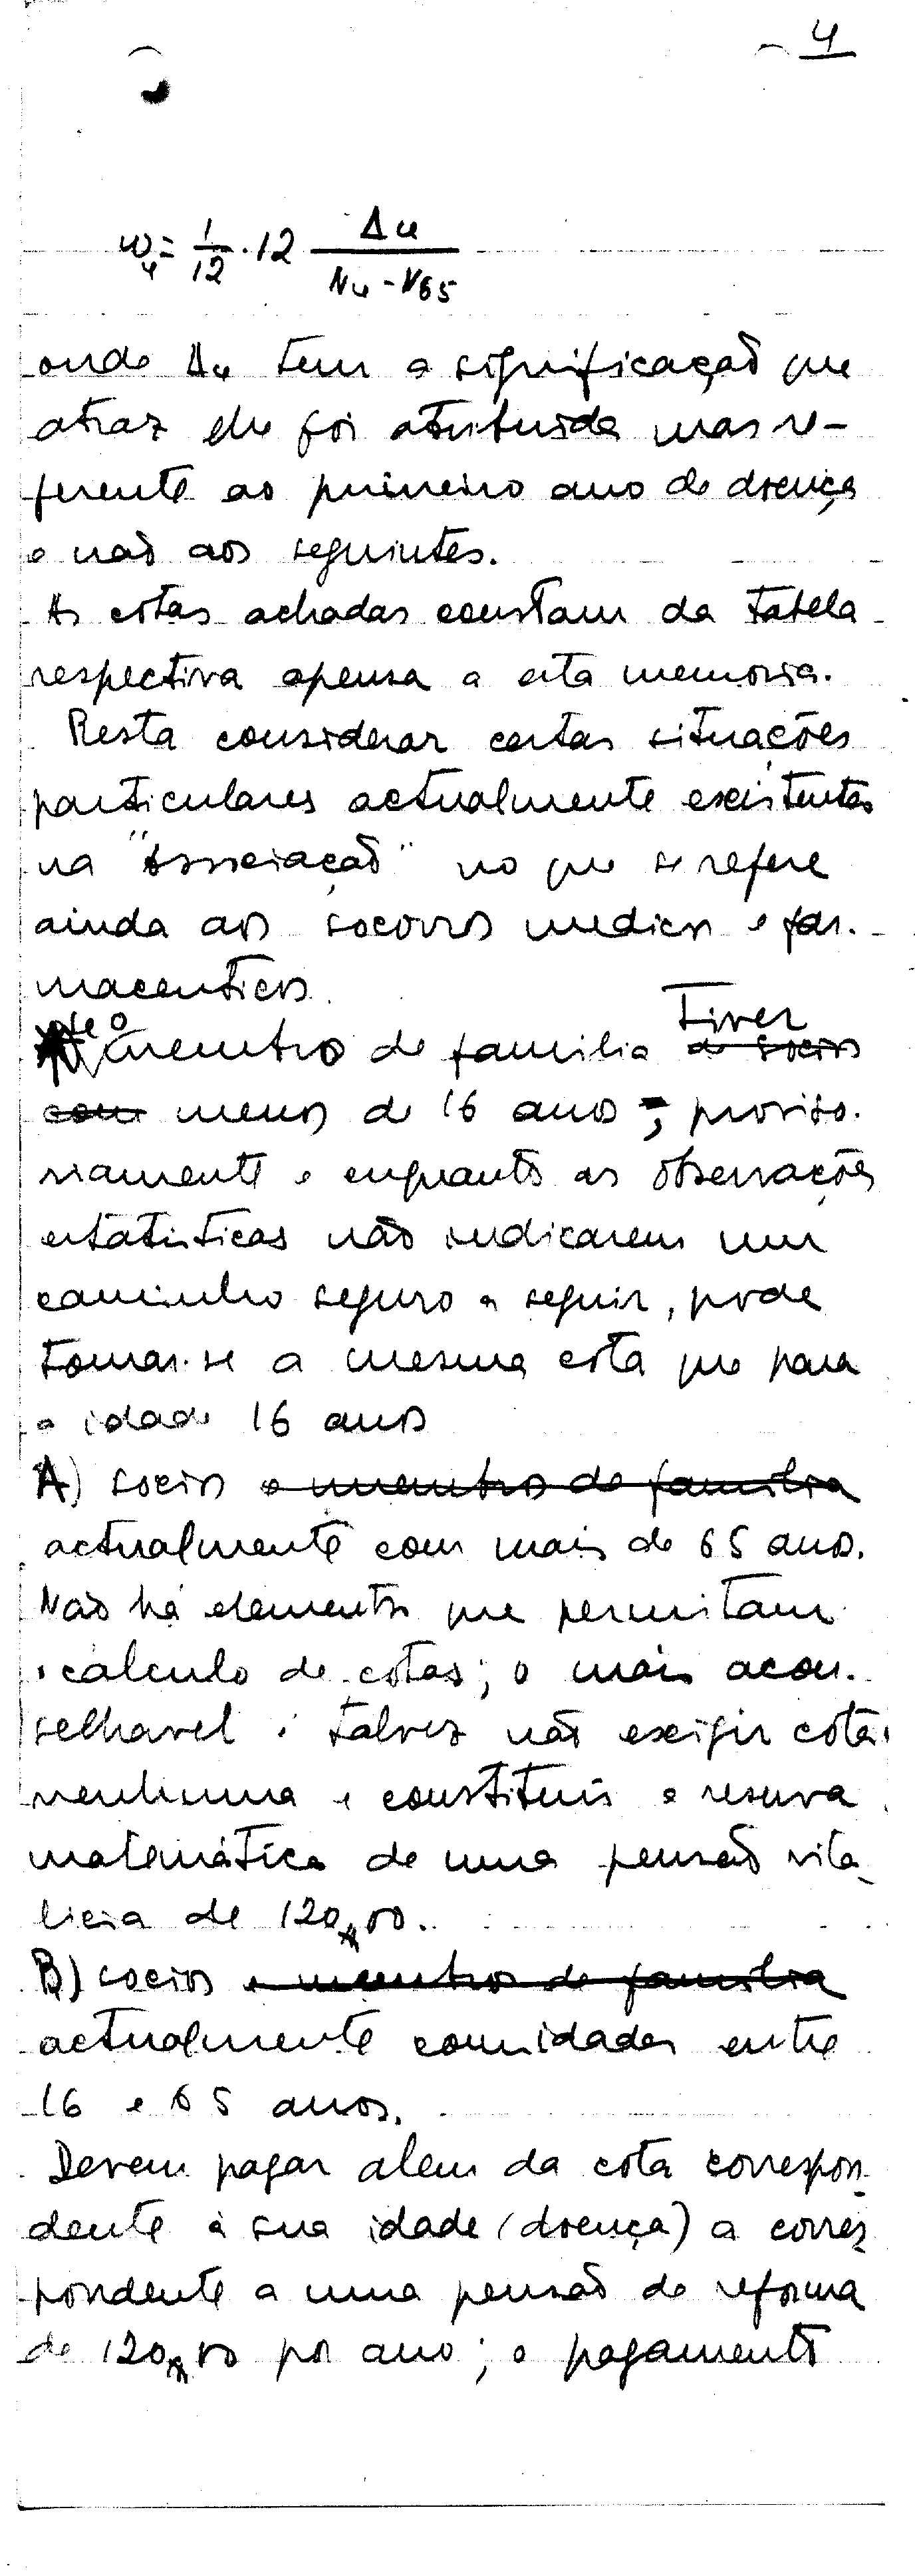 4
w₄ = 1/12 · 12 Δ₄ / N₄ - N₆₅
onde Δ₄ tem a significação que
atraz lhe foi atribuida mas re-
ferente ao primeiro ano de doença
e não aos seguintes.
As cotas achadas constam da tabela
respectiva apensa a esta memoria.
Resta considerar certas situações
particulares actualmente existentes
na "Associação" no que se refere
ainda aos socorros medicos e far-
maceuticos.
te o membro de familia tiver de socios
com menos de 16 anos -; proviso-
riamente e enquanto as observações
estatisticas não indicarem um
caminho seguro a seguir, pode
tomar-se a mesma cota que para
a idade 16 anos
A) socios e membros de familia
actualmente com mais de 65 anos.
Não há elementos que permitam
o calculo de cotas; o mais acon-
selhavel é talvez não exigir cota
nenhuma e constituir a reserva
matemática de uma pensão vita-
licia de 120$00.
B) socios e membros de familia
actualmente com idades entre
16 e 65 anos.
Devem pagar alem da cota correspon-
dente á sua idade (doença) a corres-
pondente a uma pensão de reforma
de 120$00 por ano; o pagamento